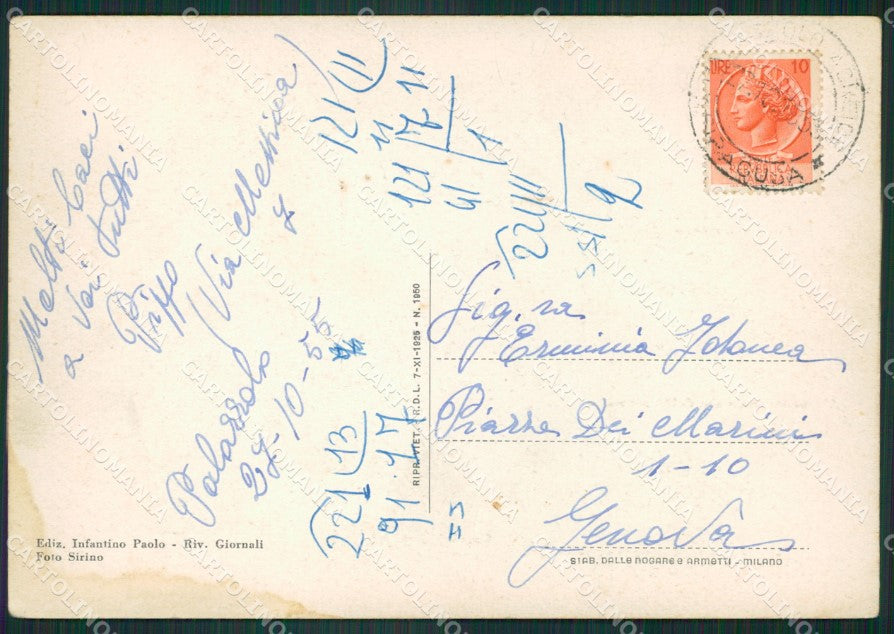 Molti baci
a voi tutti
Pippo
(Via Messina)
7
Palazzolo
27-10-55
121 11
11
121 7 11
61 1
221 11
551 2
221 13
91 17
RIPR. VIET. R.D.L. 7-XI-1925 - N. 1950
LIRE 10
RAGUSA
Sig.ra
Erminia
Piazza Dei Marini
1-10
Genova
Ediz. Infantino Paolo - Riv. Giornali
Foto Sirino
STAB. DALLE NOGARE E ARMETTI - MILANO
CARTOLINOMANIA